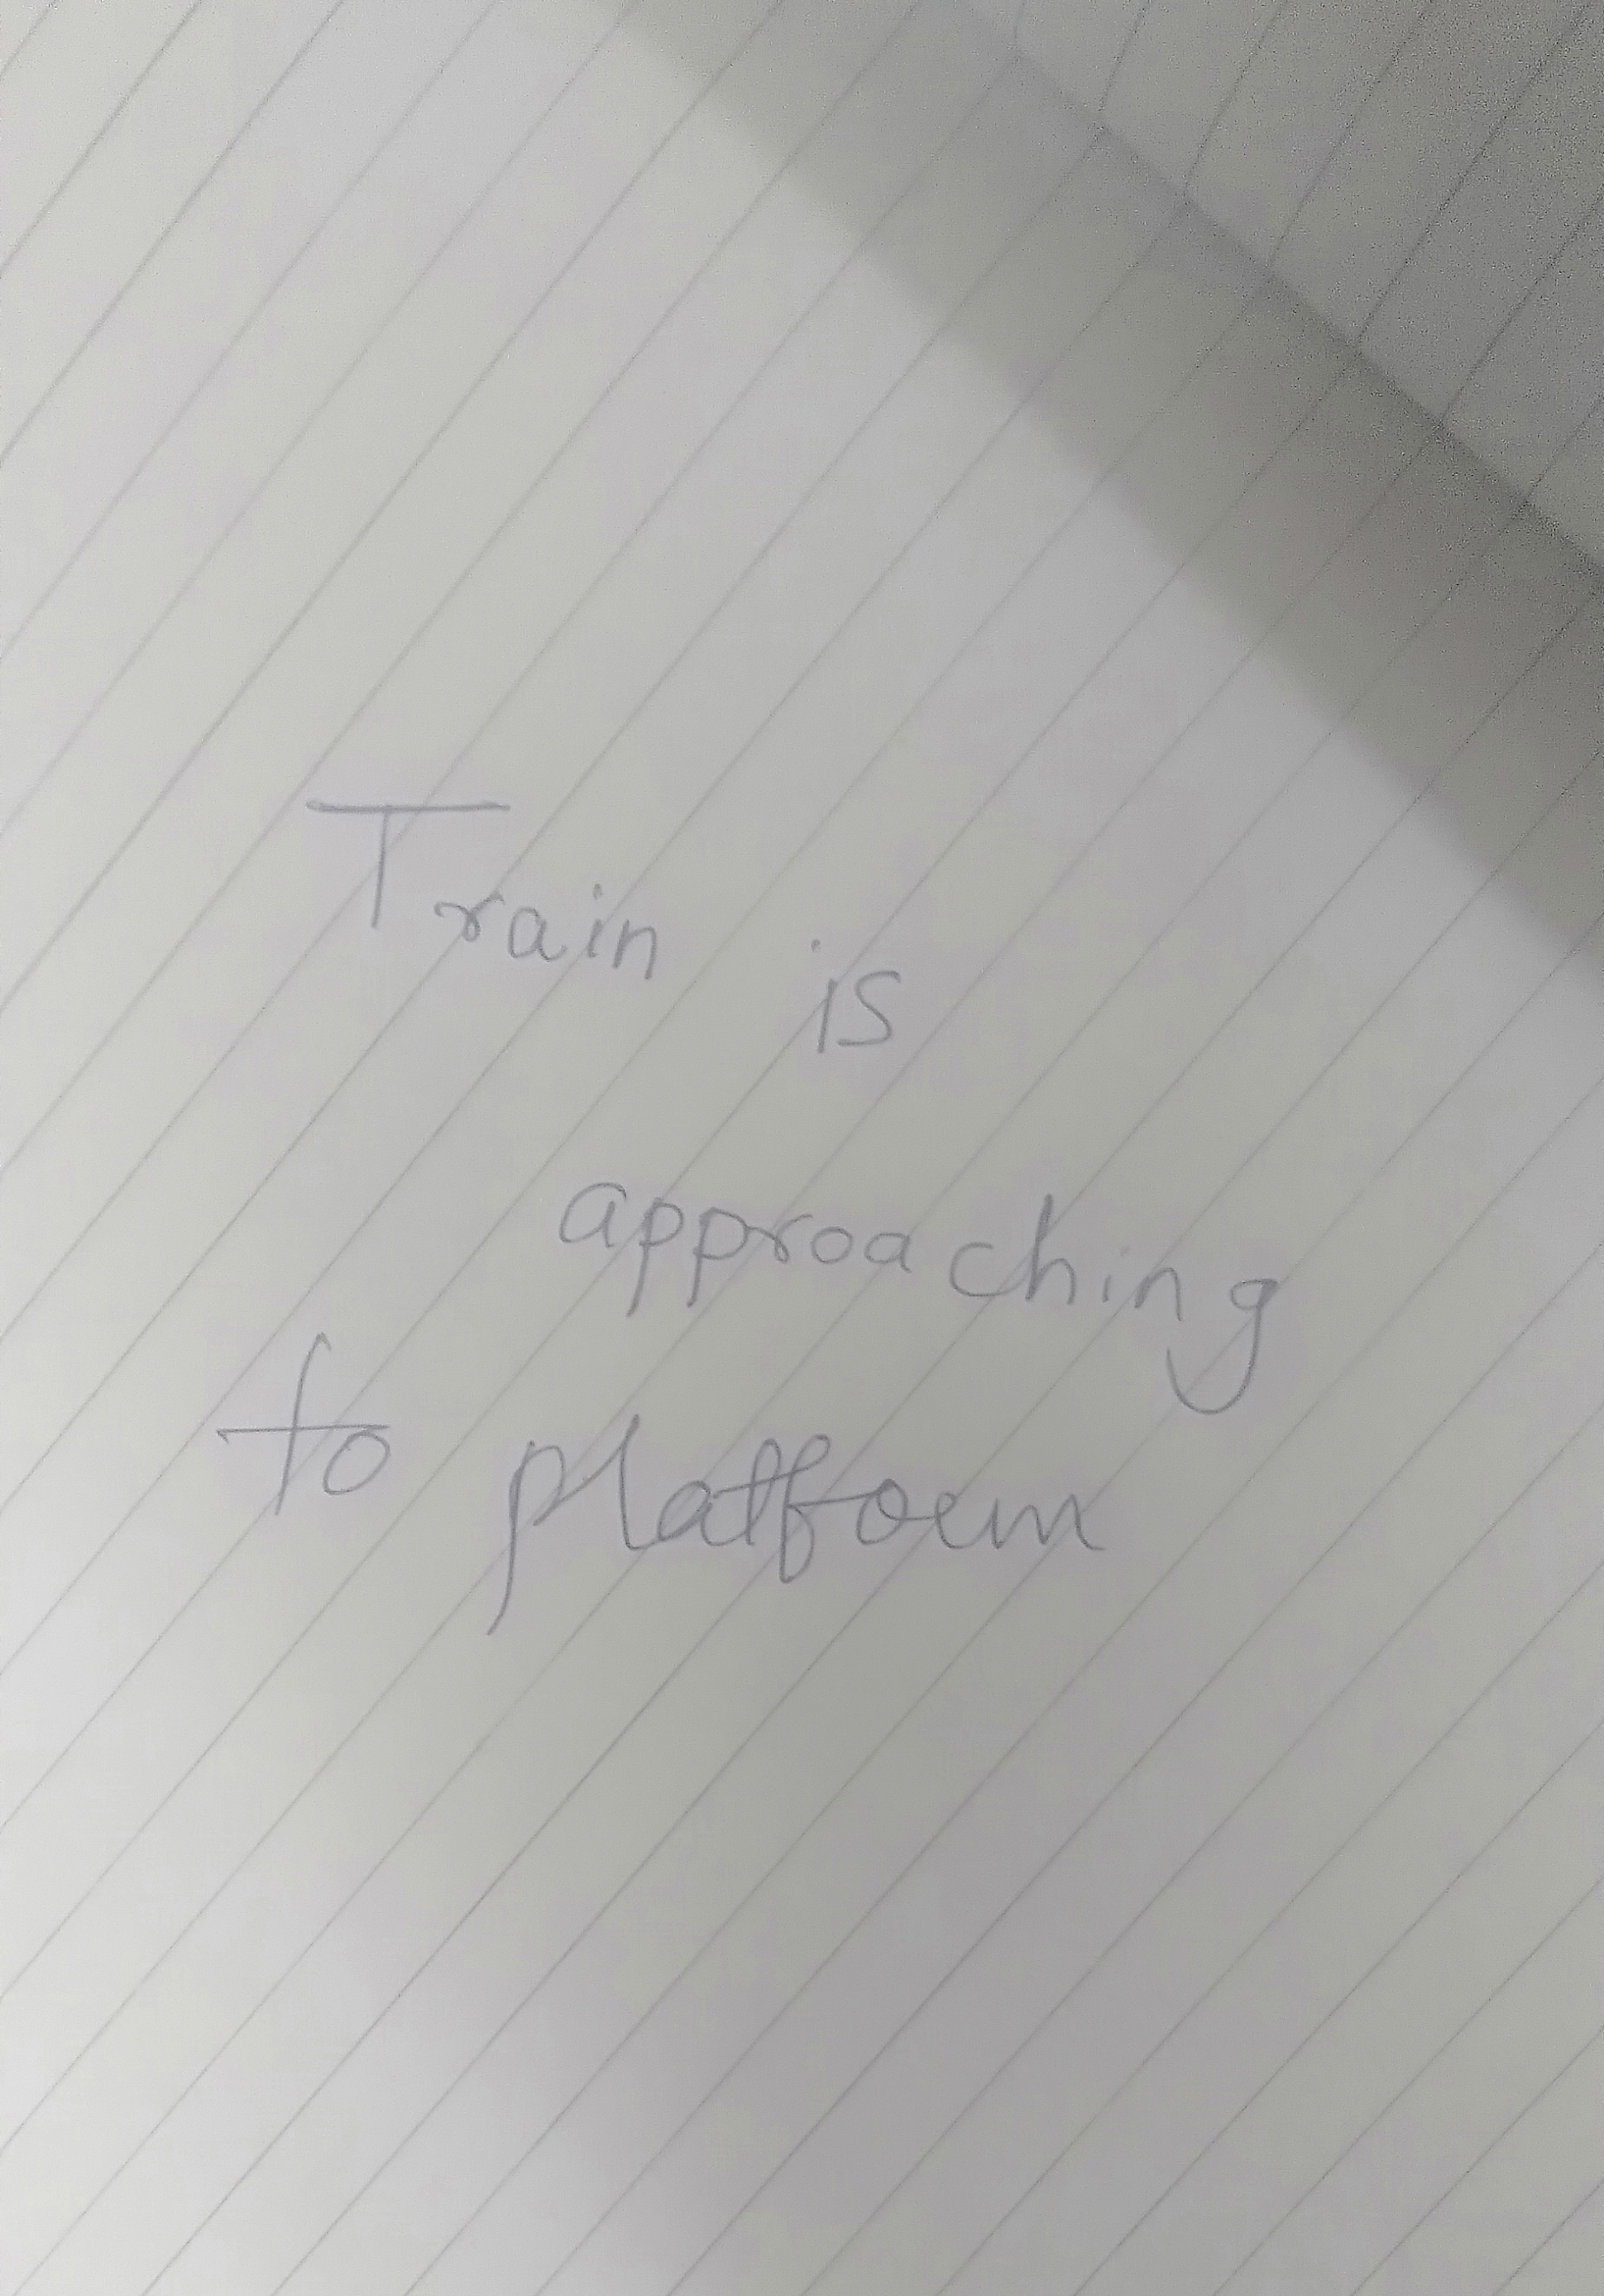 Train is
approaching
to platform